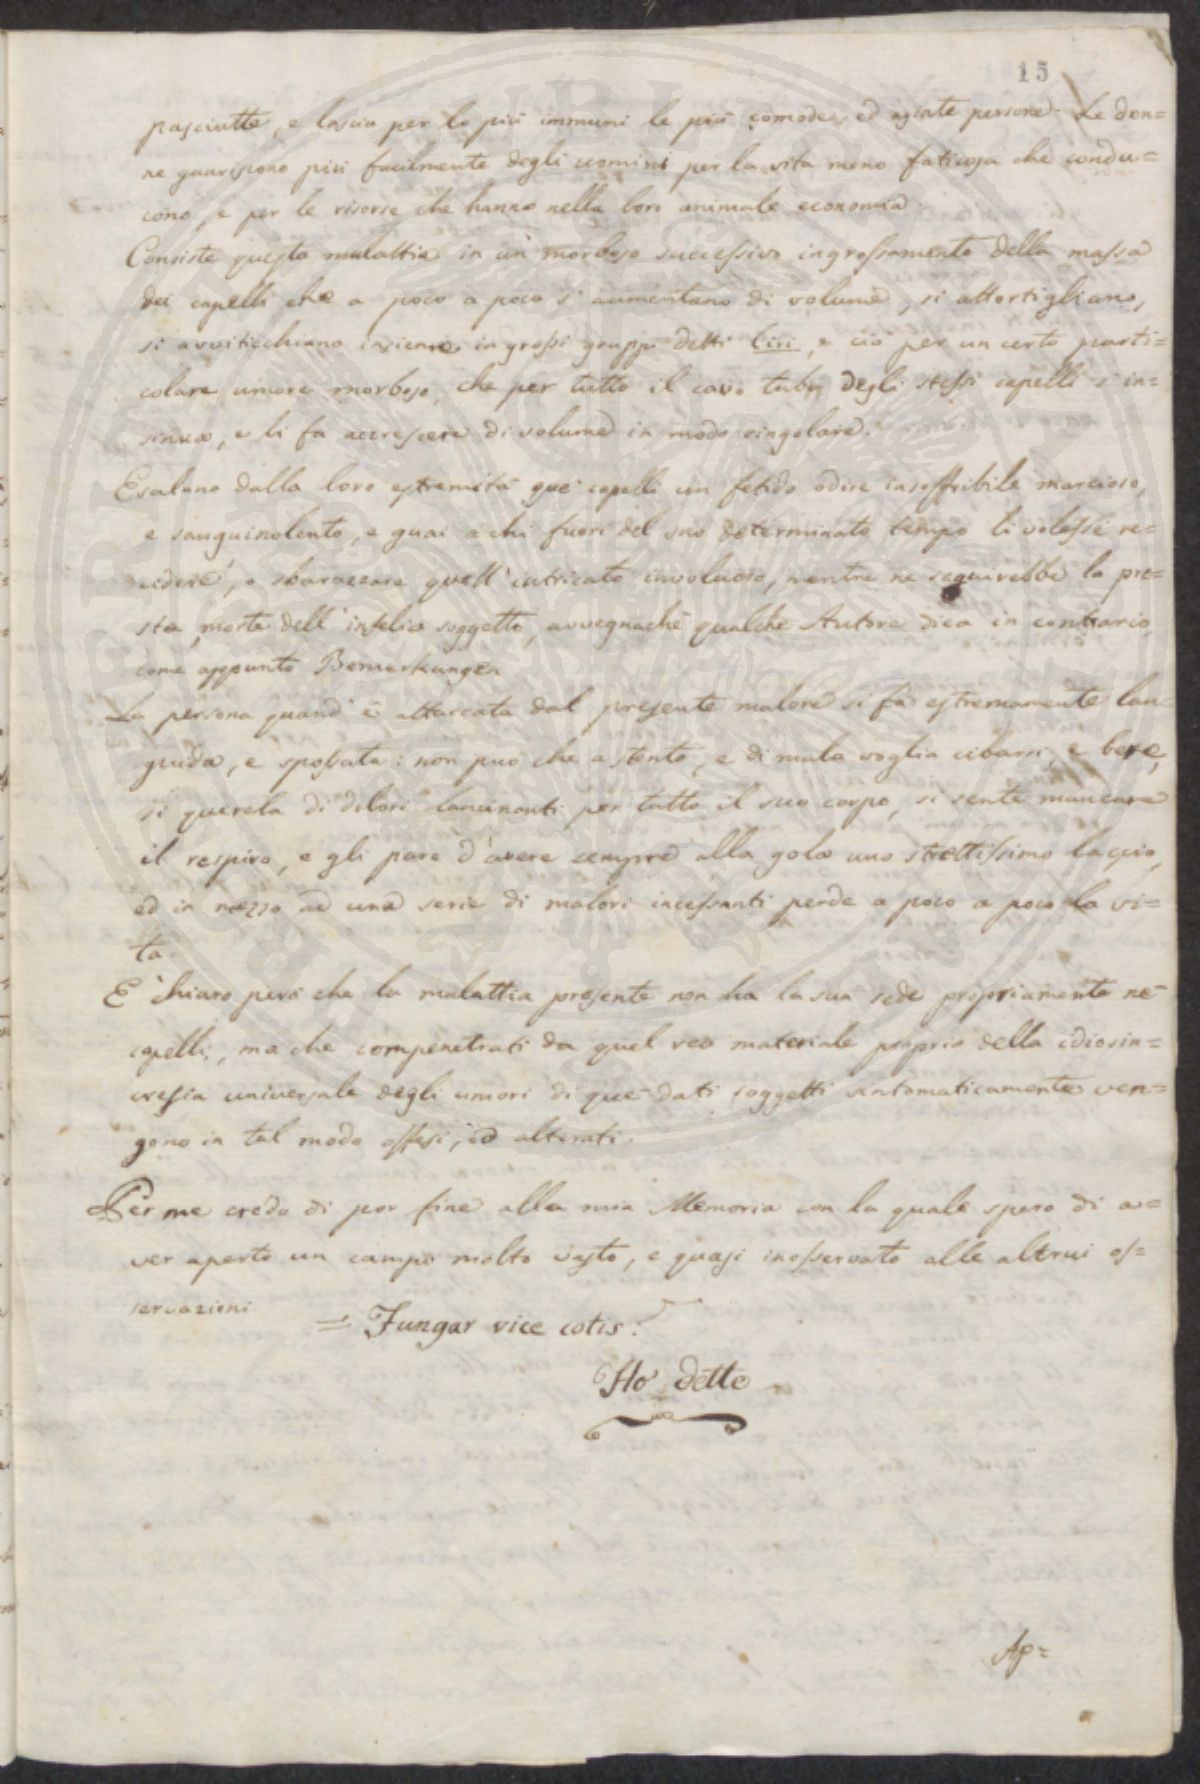 15
pasciutte, e lascia per lo più immuni le più comode, ed agiate persone. Le don=
ne guariscono più facilmente degli uomini per la vita meno faticosa che condu=
cono, e per le risorse che hanno nella loro animale economia.
Consiste questa malattia in un morboso successivo ingrossamento della massa
dei capelli che a poco a poco si aumentano di volume, si attortigliano,
si avviticchiano insieme in grossi gruppi detti Ciri, e ciò per un certo parti=
colare umore morboso, che per tutto il cavo tubo degli stessi capelli s'in=
sinua, e li fa accrescere di volume in modo singolare.
Esalano dalla loro estremità que' capelli un fetido odore insoffribile marcioso,
e sanguinolento, e guai a chi fuori del suo determinato tempo li volesse re=
cidere, o sbarazzare quell'intricato involucro, mentre ne seguirebbe la pre=
sta morte dell'infelice soggetto, avvegnachè qualche Autore dica in contrario,
come appunto Bemerkungen
La persona quand'è attaccata dal presente malore si fa estremamente lan=
guida, e spossata: non può che a stento, e di mala voglia cibarsi, e bere,
si querela di dolori lancinanti per tutto il suo corpo, si sente mancare
il respiro, e gli pare d'avere sempre alla gola uno strettissimo laccio,
ed in mezzo ad una serie di malori incessanti perde a poco a poco la vi=
ta.
E' chiaro però che la malattia presente non ha la sua sede propriamente ne'
capelli, ma che compenetrati da quel reo materiale proprio della idiosin=
cresia universale degli umori di que' dati soggetti sintomaticamente ven=
gono in tal modo offesi, ed alterati.
Per me credo di por fine alla mia Memoria con la quale spero di a=
ver aperto un campo molto vasto, e quasi inosservato alle altrui os=
servazioni
= Fungar vice cotis.
Ho dette
Ap=